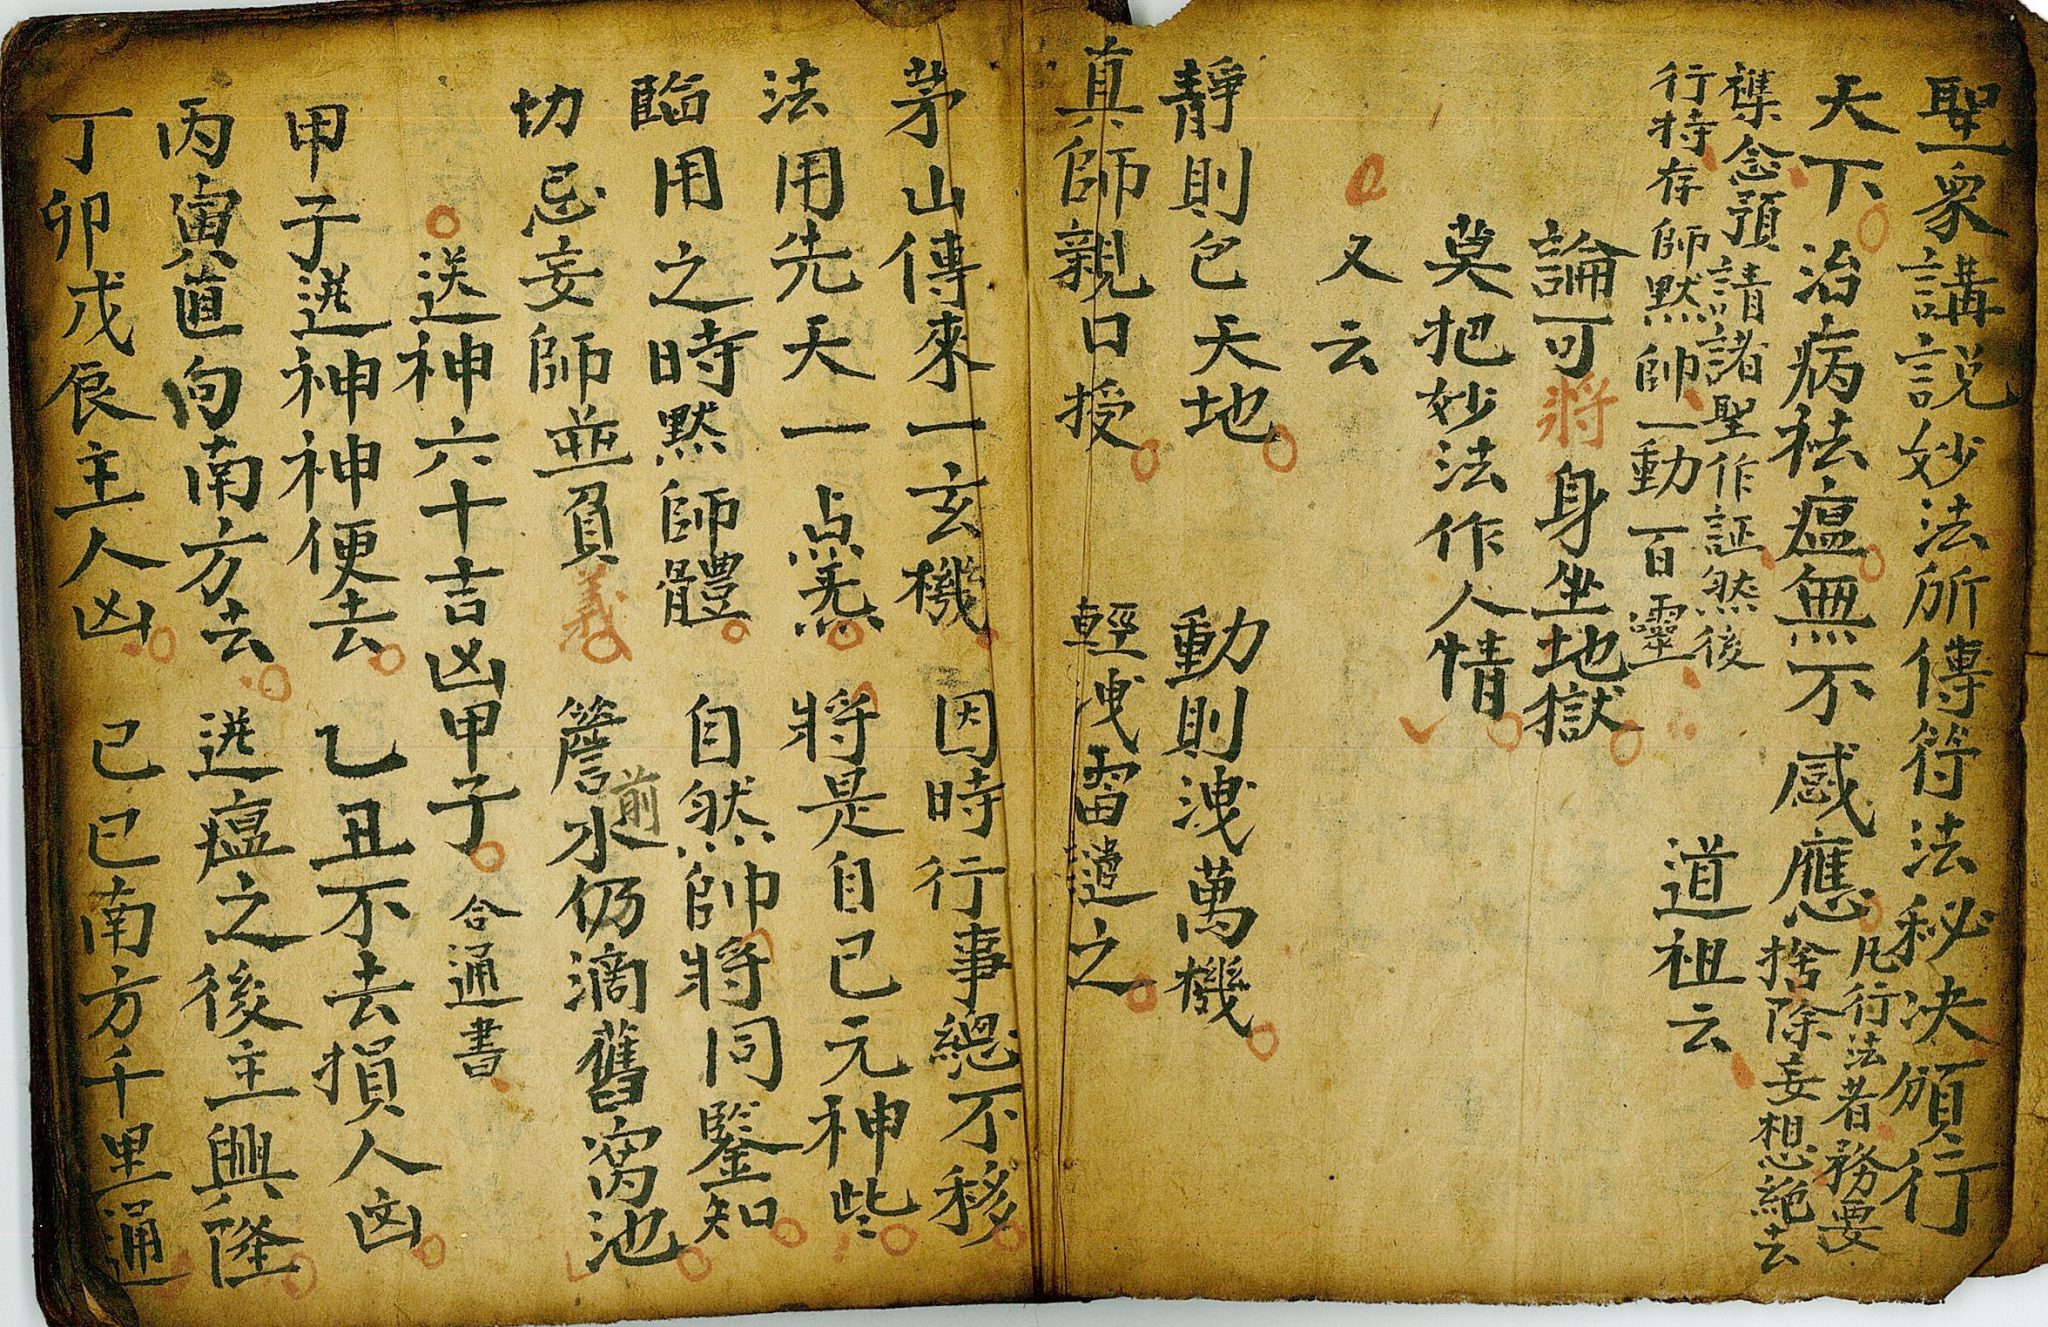 聖眾講説妙法所傳符法秘决頒行
天下治病祛瘟無不感應凡行法者務要
捨除妄想絶去
襍念預請諸聖作証然後
行持存師黙帥一動百靈
道祖云
論可將身坐地獄
莫把妙法作人情
又云
靜則包天地 動則洩萬機
真師親口授 輕洩雷譴之
茅山傳來一玄機 因時行事總不移
法用先天一点炁 將是自己元神些
臨用之時黙師體 自然帥將同鑒知
切忌妄師並負義 簷前水仍滴舊窩池
送神六十吉凶甲子 合通書
甲子送神神便去 乙丑不去損人凶
丙寅直向南方去 送瘟之後主興隆
丁卯戊辰主人凶 己巳南方千里通